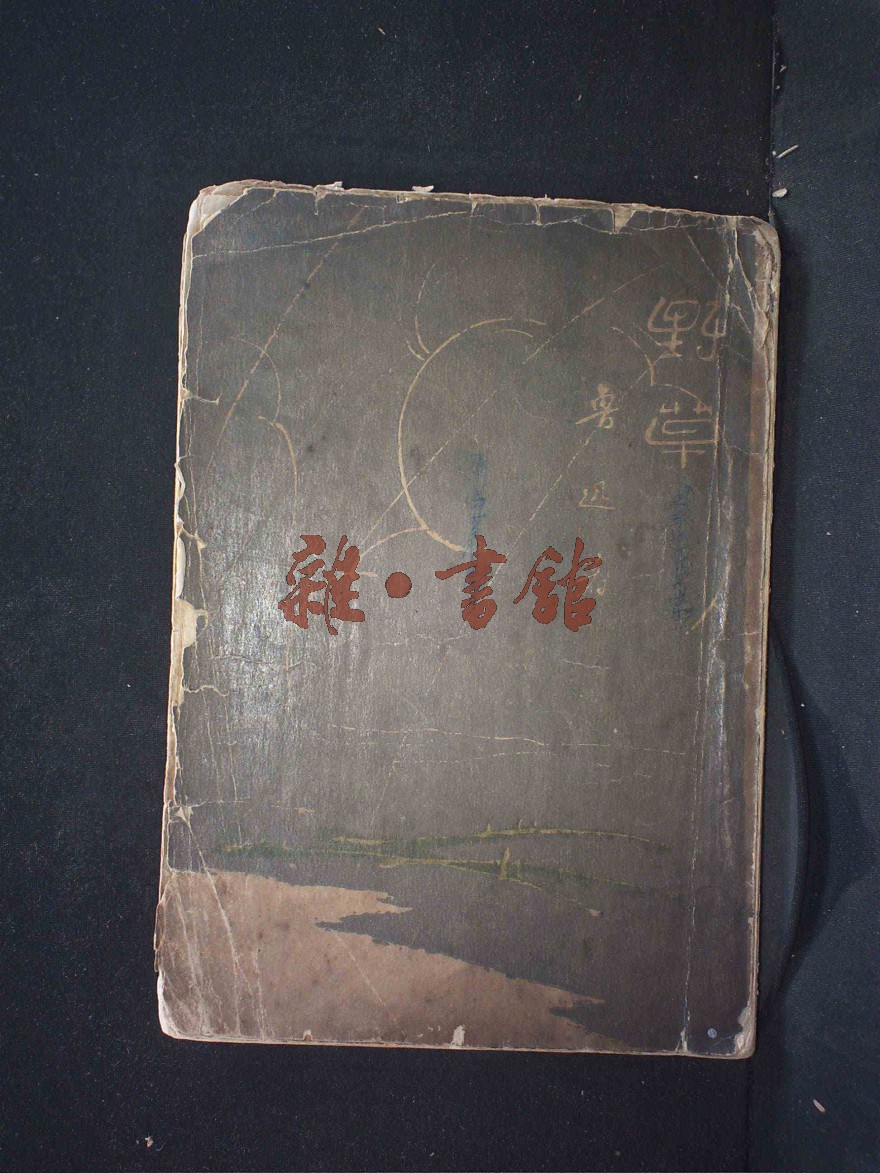 野草
魯迅
雜·書館